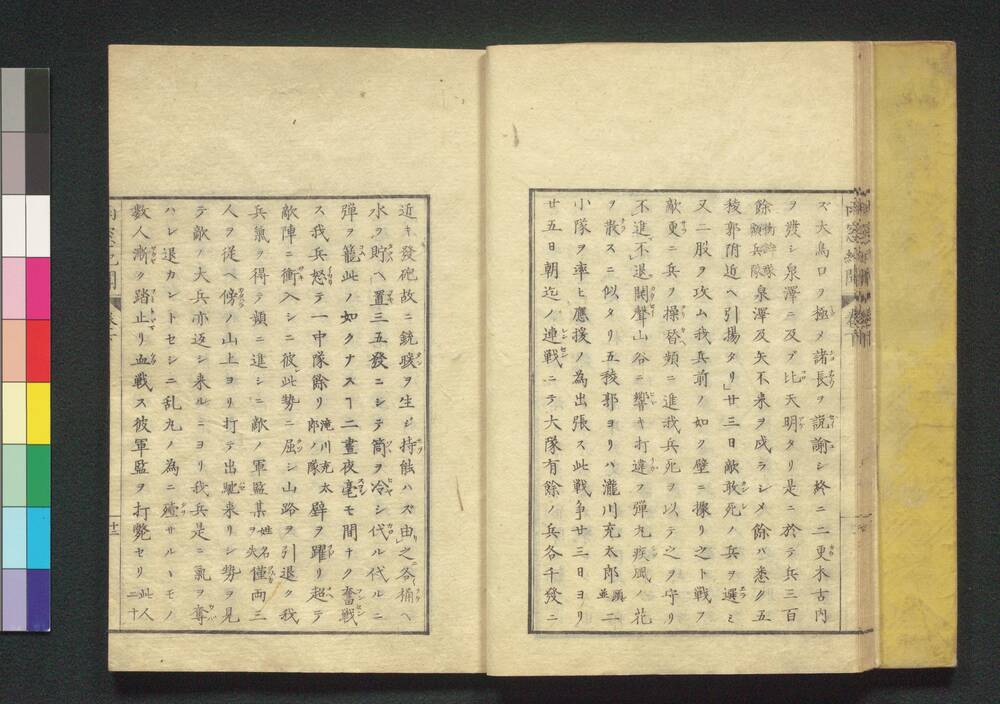 ズ大鳥口ヲ極メ諸長ヲ説諭シ終ニ二更木古内
ヲ發シ泉澤ニ及ブ比天明タリ是ニ於テ兵三百
餘泉澤及矢不来ヲ戍ラシメ餘ハ悉ク五
稜郭附近ヘ引揚タリ」廿三日敵敢死ノ兵ヲ選ミ
又二股ヲ攻ム我兵前ノ如ク壁ニ據リ之ト戦フ
敵更ニ兵ヲ操替頻ニ進我兵死ヲ以テ之ヲ守リ
不進不退鬨聲山谷ニ響キ打違フ弾丸疾風ノ花
ヲ散スニ似タリ五稜郭ヨリハ瀧川充太郎二
小隊ヲ率ヒ應援ノ為出張ス此戦争廿三日ヨリ
廿五日朝迄ノ連戦ニテ大隊有餘ノ兵各千發ニ
近キ發砲故ニ銃ヲ生ジ持能ハズ由之各桶ヘ
水ヲ貯ヘ置三五發ニシテ筒ヲ冷シ代ル代ルニ
弾ヲ籠此ノ如クナスヿ二晝夜毫モ間ナク奮戦
ス我兵怒テ一中隊餘リ滝川充太郎ノ隊壁ヲ躍リ超テ
敵陣ニ衝入シニ彼此勢ニ屈シ山路ヲ引退ク我
兵氣ヲ得テ頻ニ進シニ敵ノ軍監某姓名ヲ失僅両三
人ヲ従ヘ傍ノ山上ヨリ打テ出馳来リシ勢ヲ見
テ敵ノ大兵亦返シ来ルニヨリ我兵是ニ氣ヲ奪
ハレ退カントセシニ乱丸ノ為ニ殪サルヽモノ
數人漸ク踏止リ血戦ス彼軍監ヲ打斃セリ此人二十